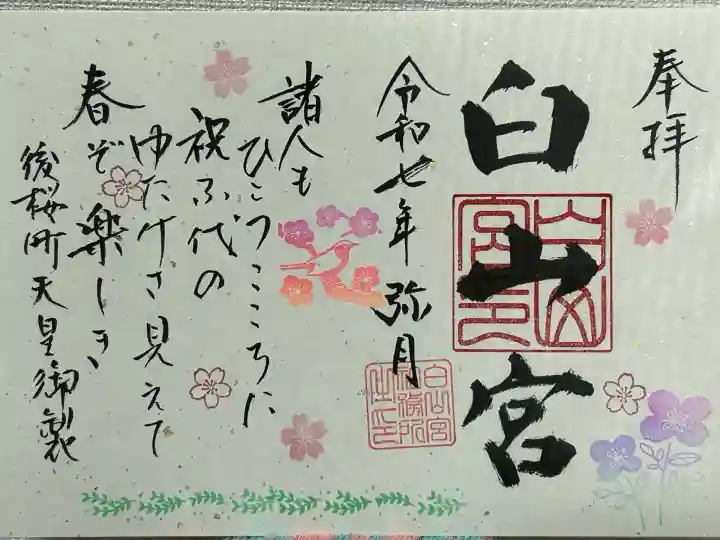 奉拝
白山宮
白山宮印
令和七年 弥月
白山宮社務所之印
諸人も
ひとつこころに
祝ふ代の
ゆたけさ見えて
春ぞ楽しき
後桜町天皇御製